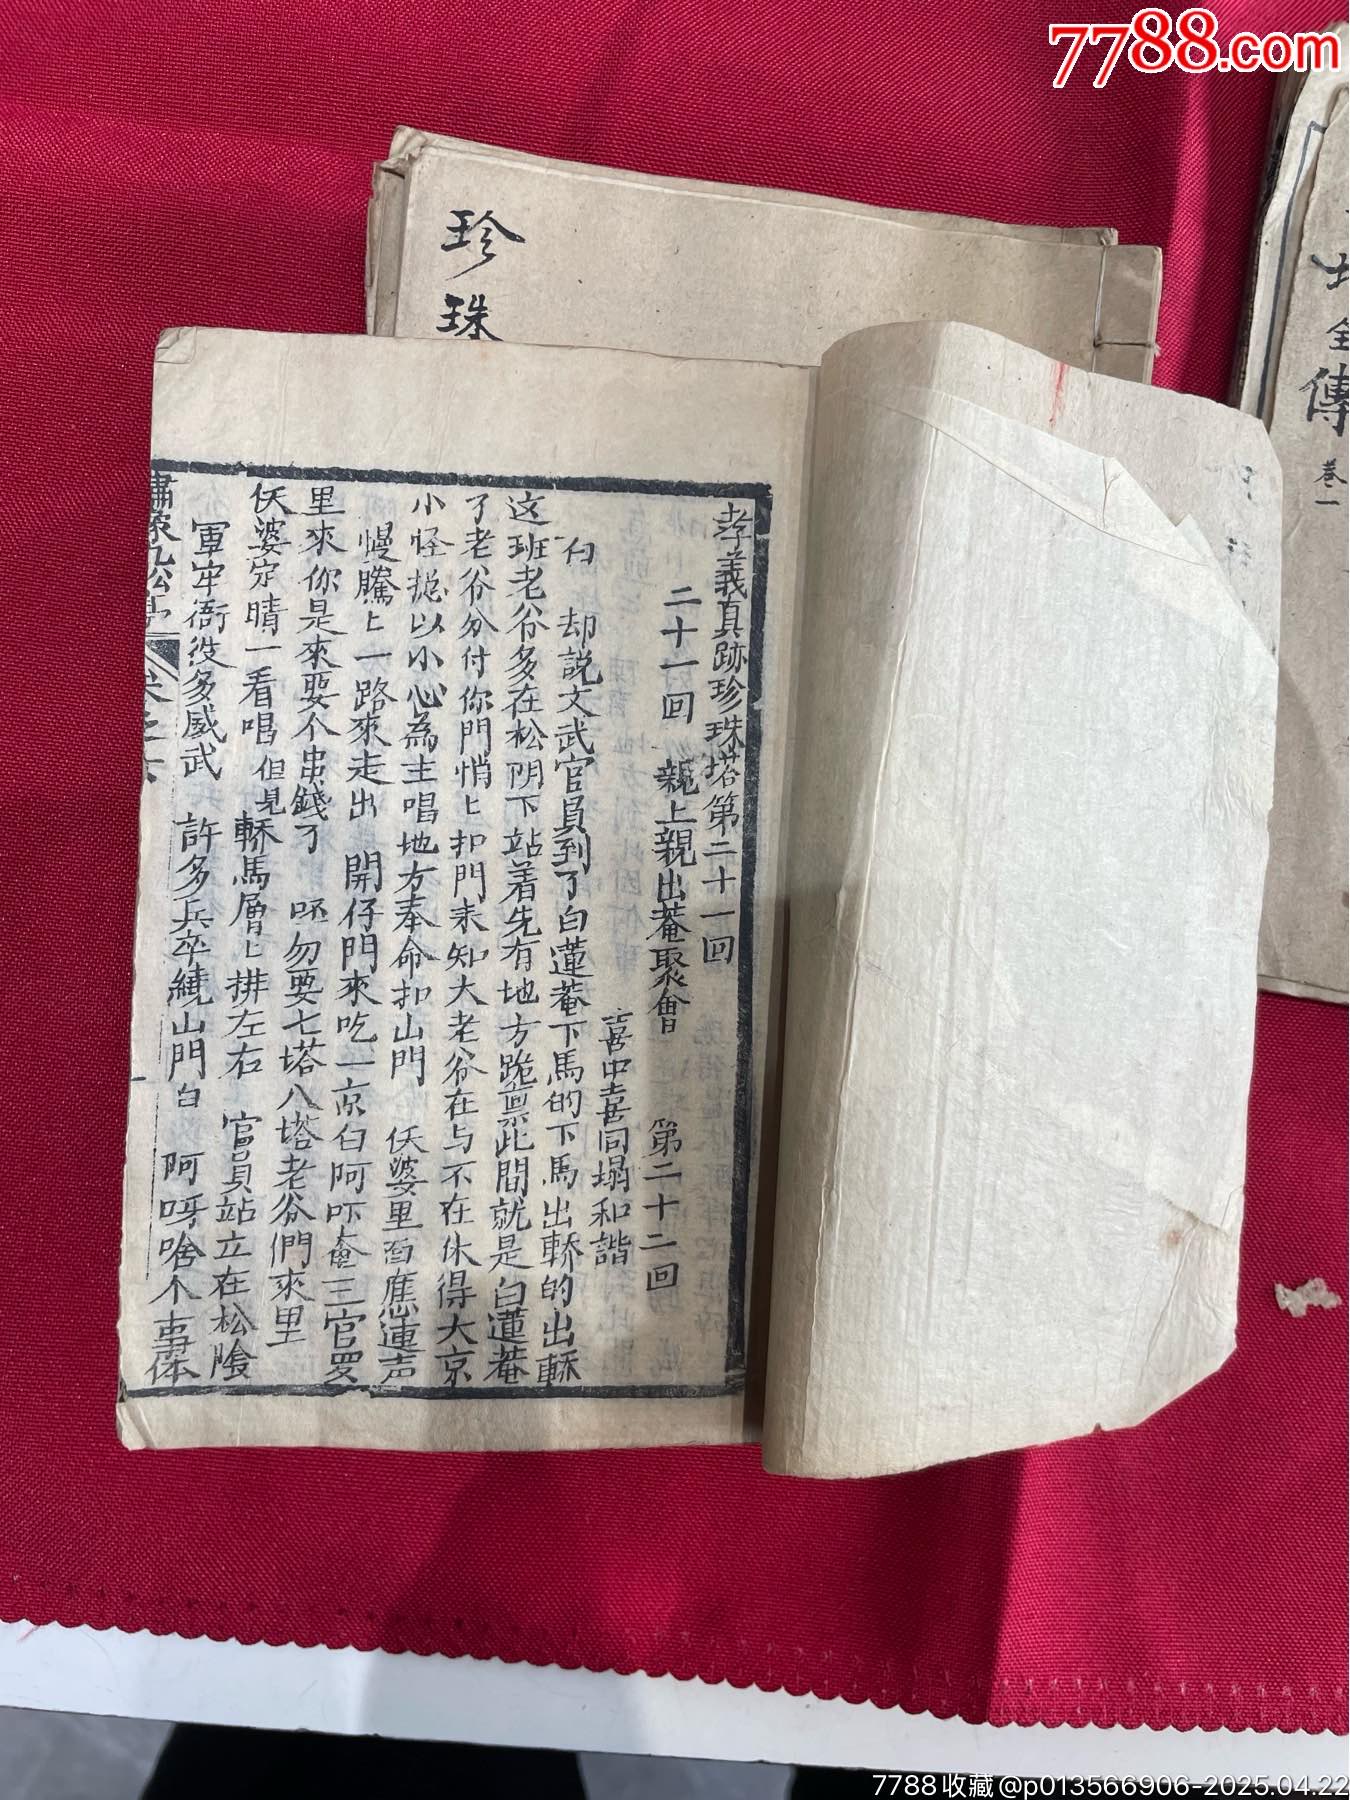 7788.com
珍珠
全傳
卷一
孝義真跡珍珠塔第二十一回
二十一回 親上親出菴聚會 第二十二回
喜中喜同塌和諧
白 却説文武官員到了白蓮菴下馬的下馬出轎的出轎
这班老爷多在松阴下站着先有地方跪禀此間就是白蓮菴
了老爷分付你門悄匕扣門未知大老爷在与不在休得大京
小怪摠以小心為主唱地方奉命扣山門 伕婆里面應連声
慢騰匕一路來走出 開仔門來吃一京白阿吓奄三官罗
里來你是來要个串錢了 呸勿要七塔八塔老爷們來里
伕婆定晴一看唱但見轎馬層匕排左右 官員站立在松陰
軍牢衙役多威武 許多兵卒繞山門白 阿呀啥个事体
繡像九松亭 卷之六
一
7788收藏@p013566906-2025.04.22